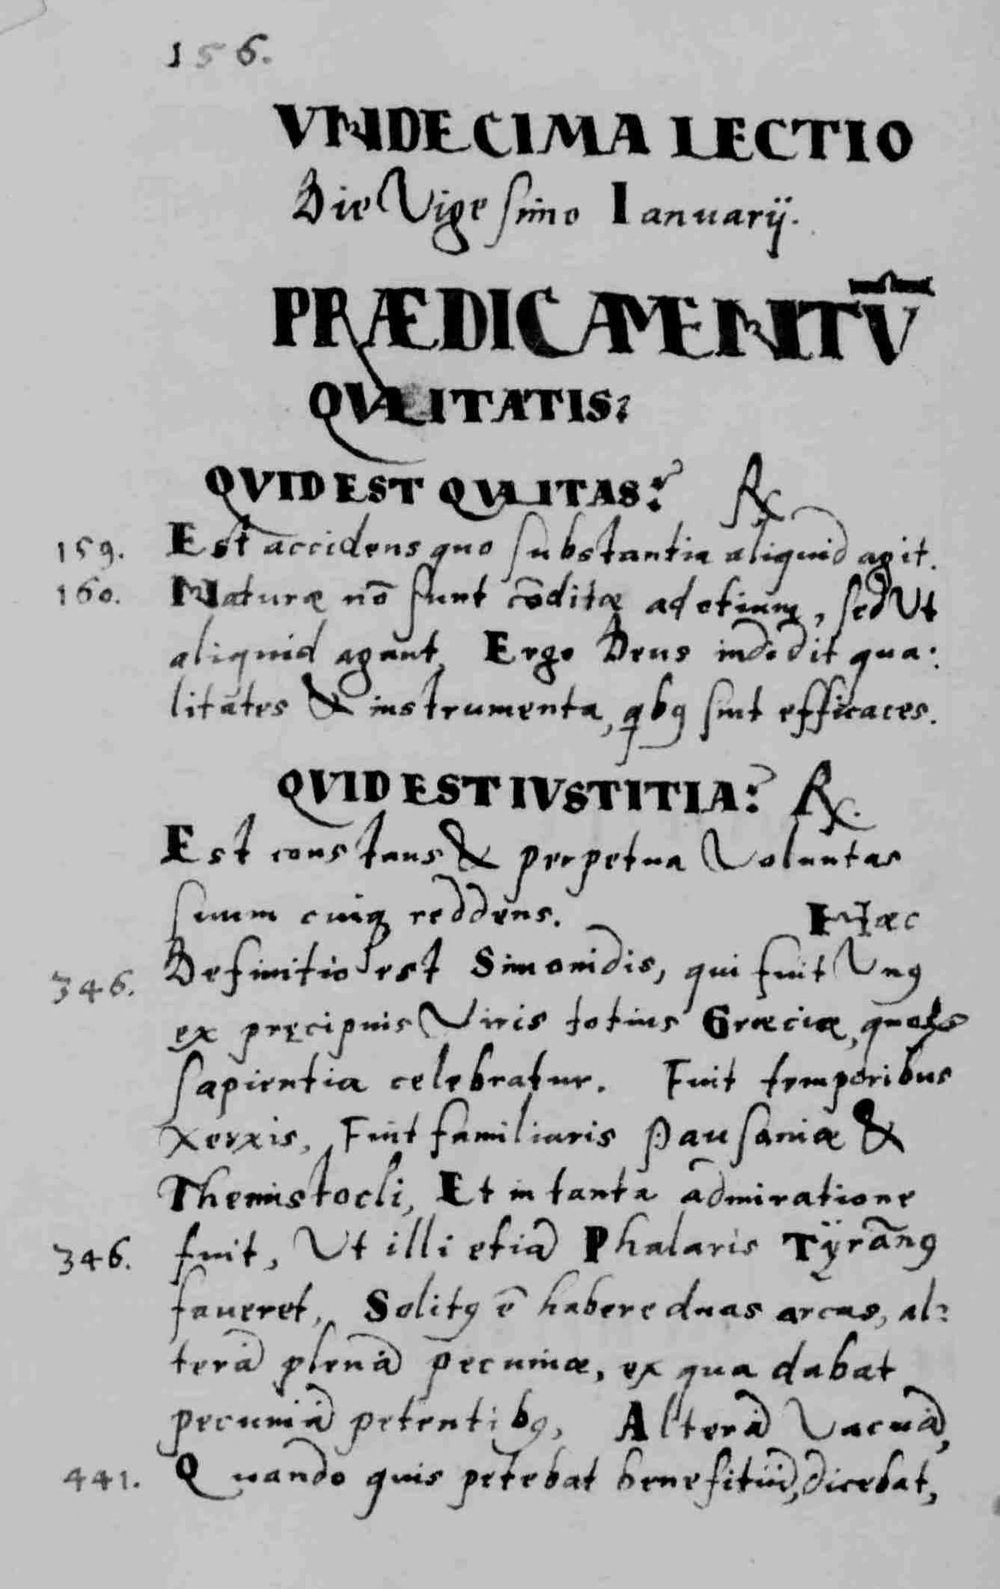 156.
VNDECIMA LECTIO
Die Vigesimo Ianuarij.
PRÆDICAMENTV̄
QVALITATIS:
QVID EST QVALITAS? ℞
159. Est accidens quo substantia aliquid agit.
160. Naturæ nō sunt cōditæ ad otium, sed Vt
aliquid agant, Ergo Deus indidit qua:
litates & instrumenta, qbꝯ sint efficaces.
QVID EST IVSTITIA? ℞.
Est constans & perpetua Voluntas
suum cuiqꝫ reddens. Hæc
346. Definitio est Simonidis, qui fuit Vnꝯ
ex pręcipuis Viris totius Græciæ,
sapientia celebratur. Fuit temporibus
Xerxis, Fuit familiaris Pausaniæ &
Themistocli, Et in tanta admiratione
346. fuit, Vt illi etiā Phalaris Tÿrānꝯ
faueret, Solitꝯ ē habere duas arcas, al:
terā plenā pecuniæ, ex qua dabat
pecuniā petentibꝯ, Alterā Vacuā,
441. Quando quis petebat benefitiū, dicebat,